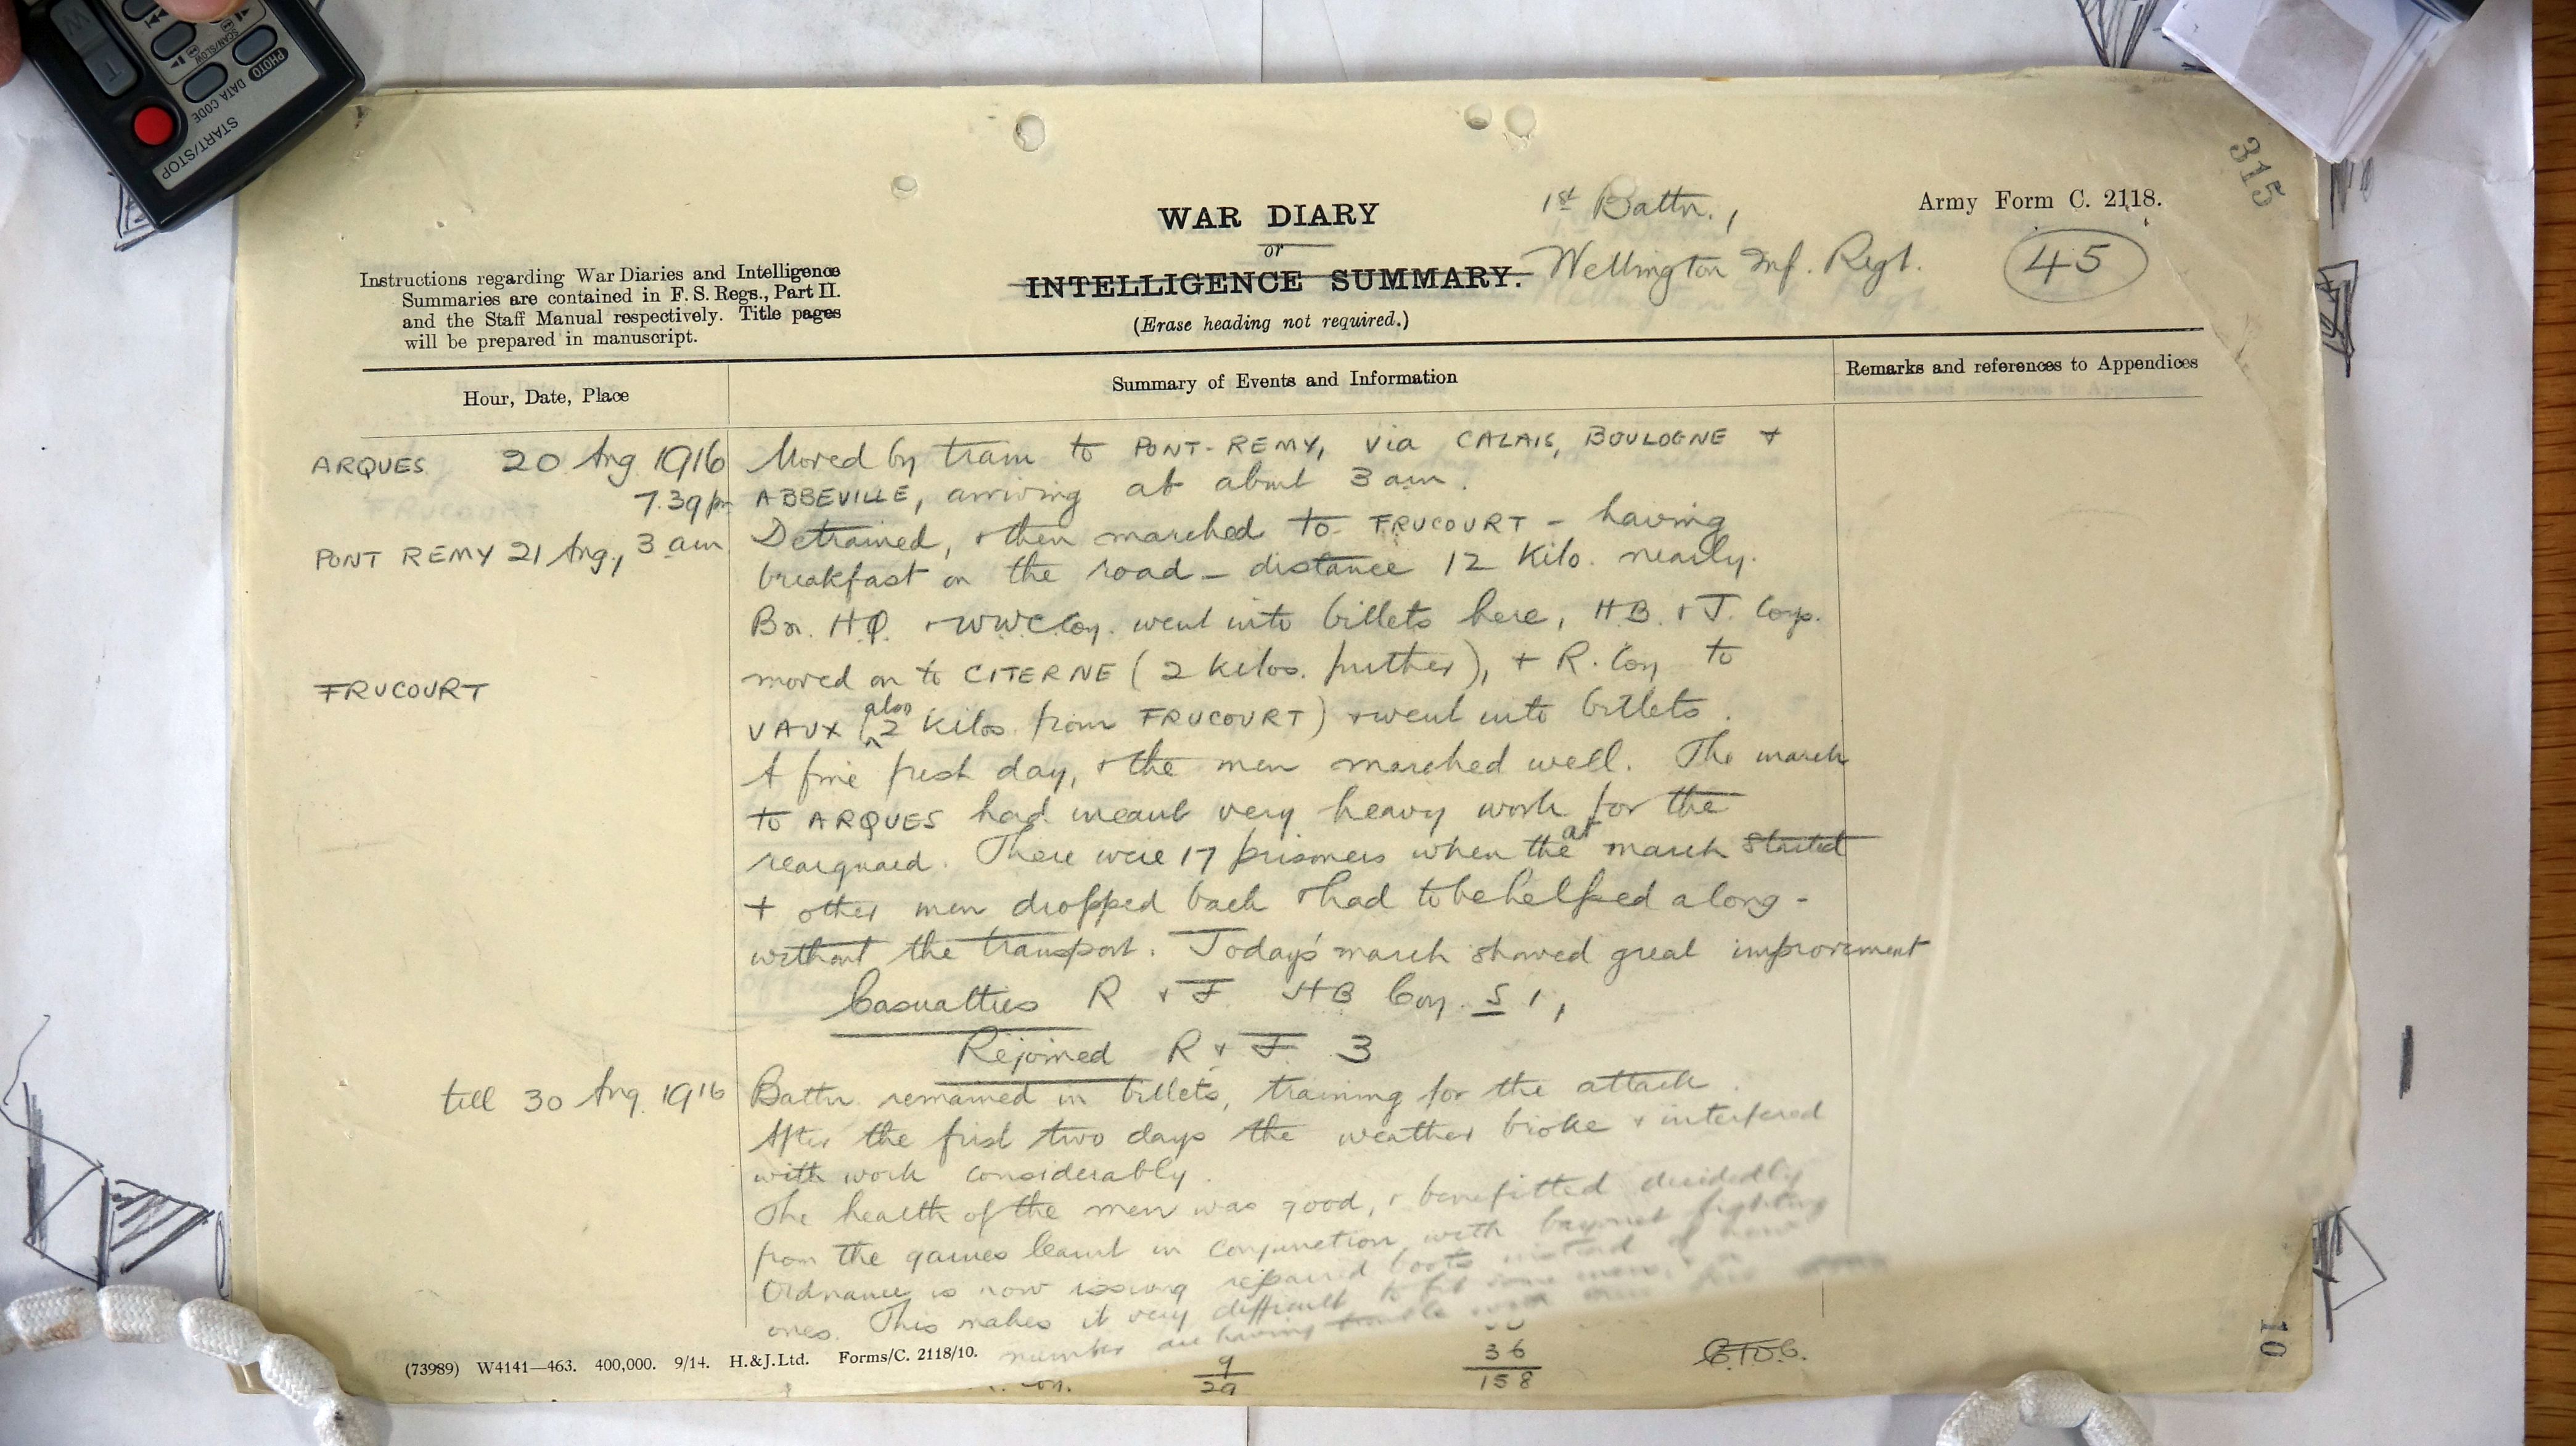 PHOTO
SCAN/SLOW
DATA CODE
START/STOP
T
W
315
WAR DIARY
or
INTELLIGENCE SUMMARY.
(Erase heading not required.)
1st Battn.,
Wellington Inf. Regt.
Army Form C. 2118.
45
Instructions regarding War Diaries and Intelligence
Summaries are contained in F. S. Regs., Part II.
and the Staff Manual respectively. Title pages
will be prepared in manuscript.
Hour, Date, Place
Summary of Events and Information
Remarks and references to Appendices
ARQUES 20 Aug 1916 Moved by train to PONT-REMY, via CALAIS, BOULOGNE +
7.39 pm ABBEVILLE, arriving at about 3 am.
PONT REMY 21 Aug., 3 am Detrained, + then marched to FRUCOURT - having
breakfast on the road - distance 12 Kilo. nearly.
Bn. HQ. + WWC Coy. went into billets here, H.B. + T. Coys.
FRUCOURT moved on to CITERNE (2 kilos. further), + R. Coy to
VAUX (also 2 Kilos from FRUCOURT) + went into billets.
A fine fresh day, + the men marched well. The march
to ARQUES had meant very heavy work for the
rearguard. There were 17 prisoners when the at march started
+ other men dropped back + had to be helped along -
without the transport. Today's march showed great improvement
Casualties R + F HB Coy. S 1,
Rejoined R + F. 3
till 30 Aug. 1916 Battn. remained in billets, training for the attack.
After the first two days the weather broke + interfered
with work considerably.
The health of the men was good, + benefitted decidedly
from the games learnt in conjunction with bayonet fighting
Ordnance is now issuing repaired boots instead of new
ones. This makes it very difficult to fit some men,
number are having trouble with their
(73989) W4141—463. 400,000. 9/14. H.&J.Ltd. Forms/C. 2118/10.
9
29
36
158
10